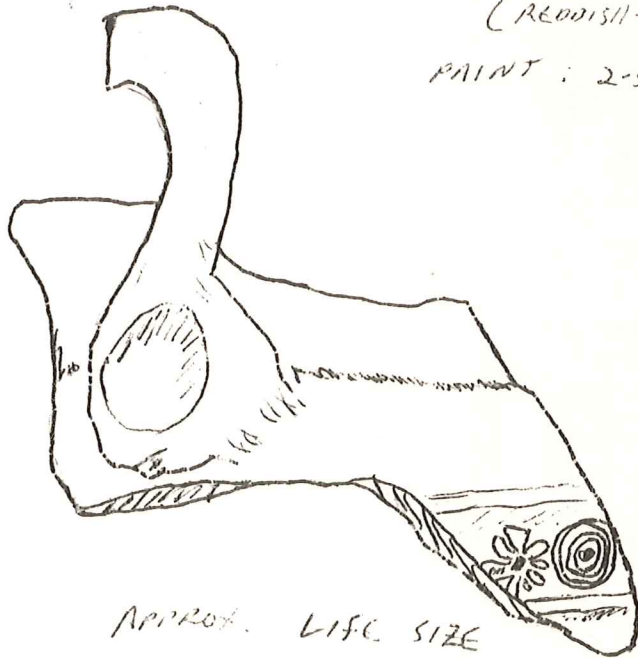 (REDDISH-
PAINT : 2-
APPROX. LIFE SIZE